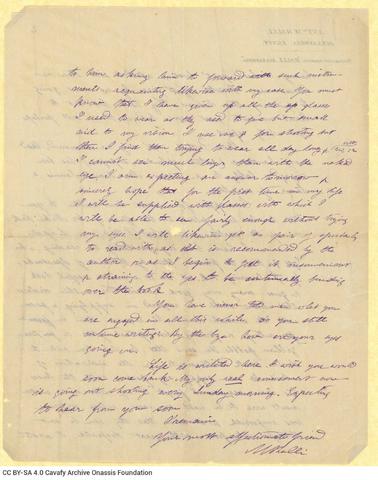 to him asking him to forward such instru-
ments requesting likewise with my case. You must
know that I have given up all the eye glasses
I used to wear as the used to give but small
aid to my vision. I use one for shooting but
then I find them trying to wear all day long, &
I cannot see much longer than with the naked
eye. I am expecting an answer tomorrow &
sincerely hope that for the first time in my life
I will be supplied with glasses with which I
will be able to see fairly enough without trying
my eyes. I will likewise get a pair of spectacles
to read with, as that is recommended by the
author & as I begin to feel it inconvenient
& straining to the eyes to be continually bending
over the book.
You have never told me what you
are engaged in all this while. Do you still
continue writing by the bye how are your eyes
going on.
Life is wretched here. I wish you would
soon come back. My only real amusement now
is going out shooting every Sunday morning. Expecting
to hear from you soon
I remain
Your most affectionate friend
M Ralli
CC BY-SA 4.0 Cavafy Archive Onassis Foundation